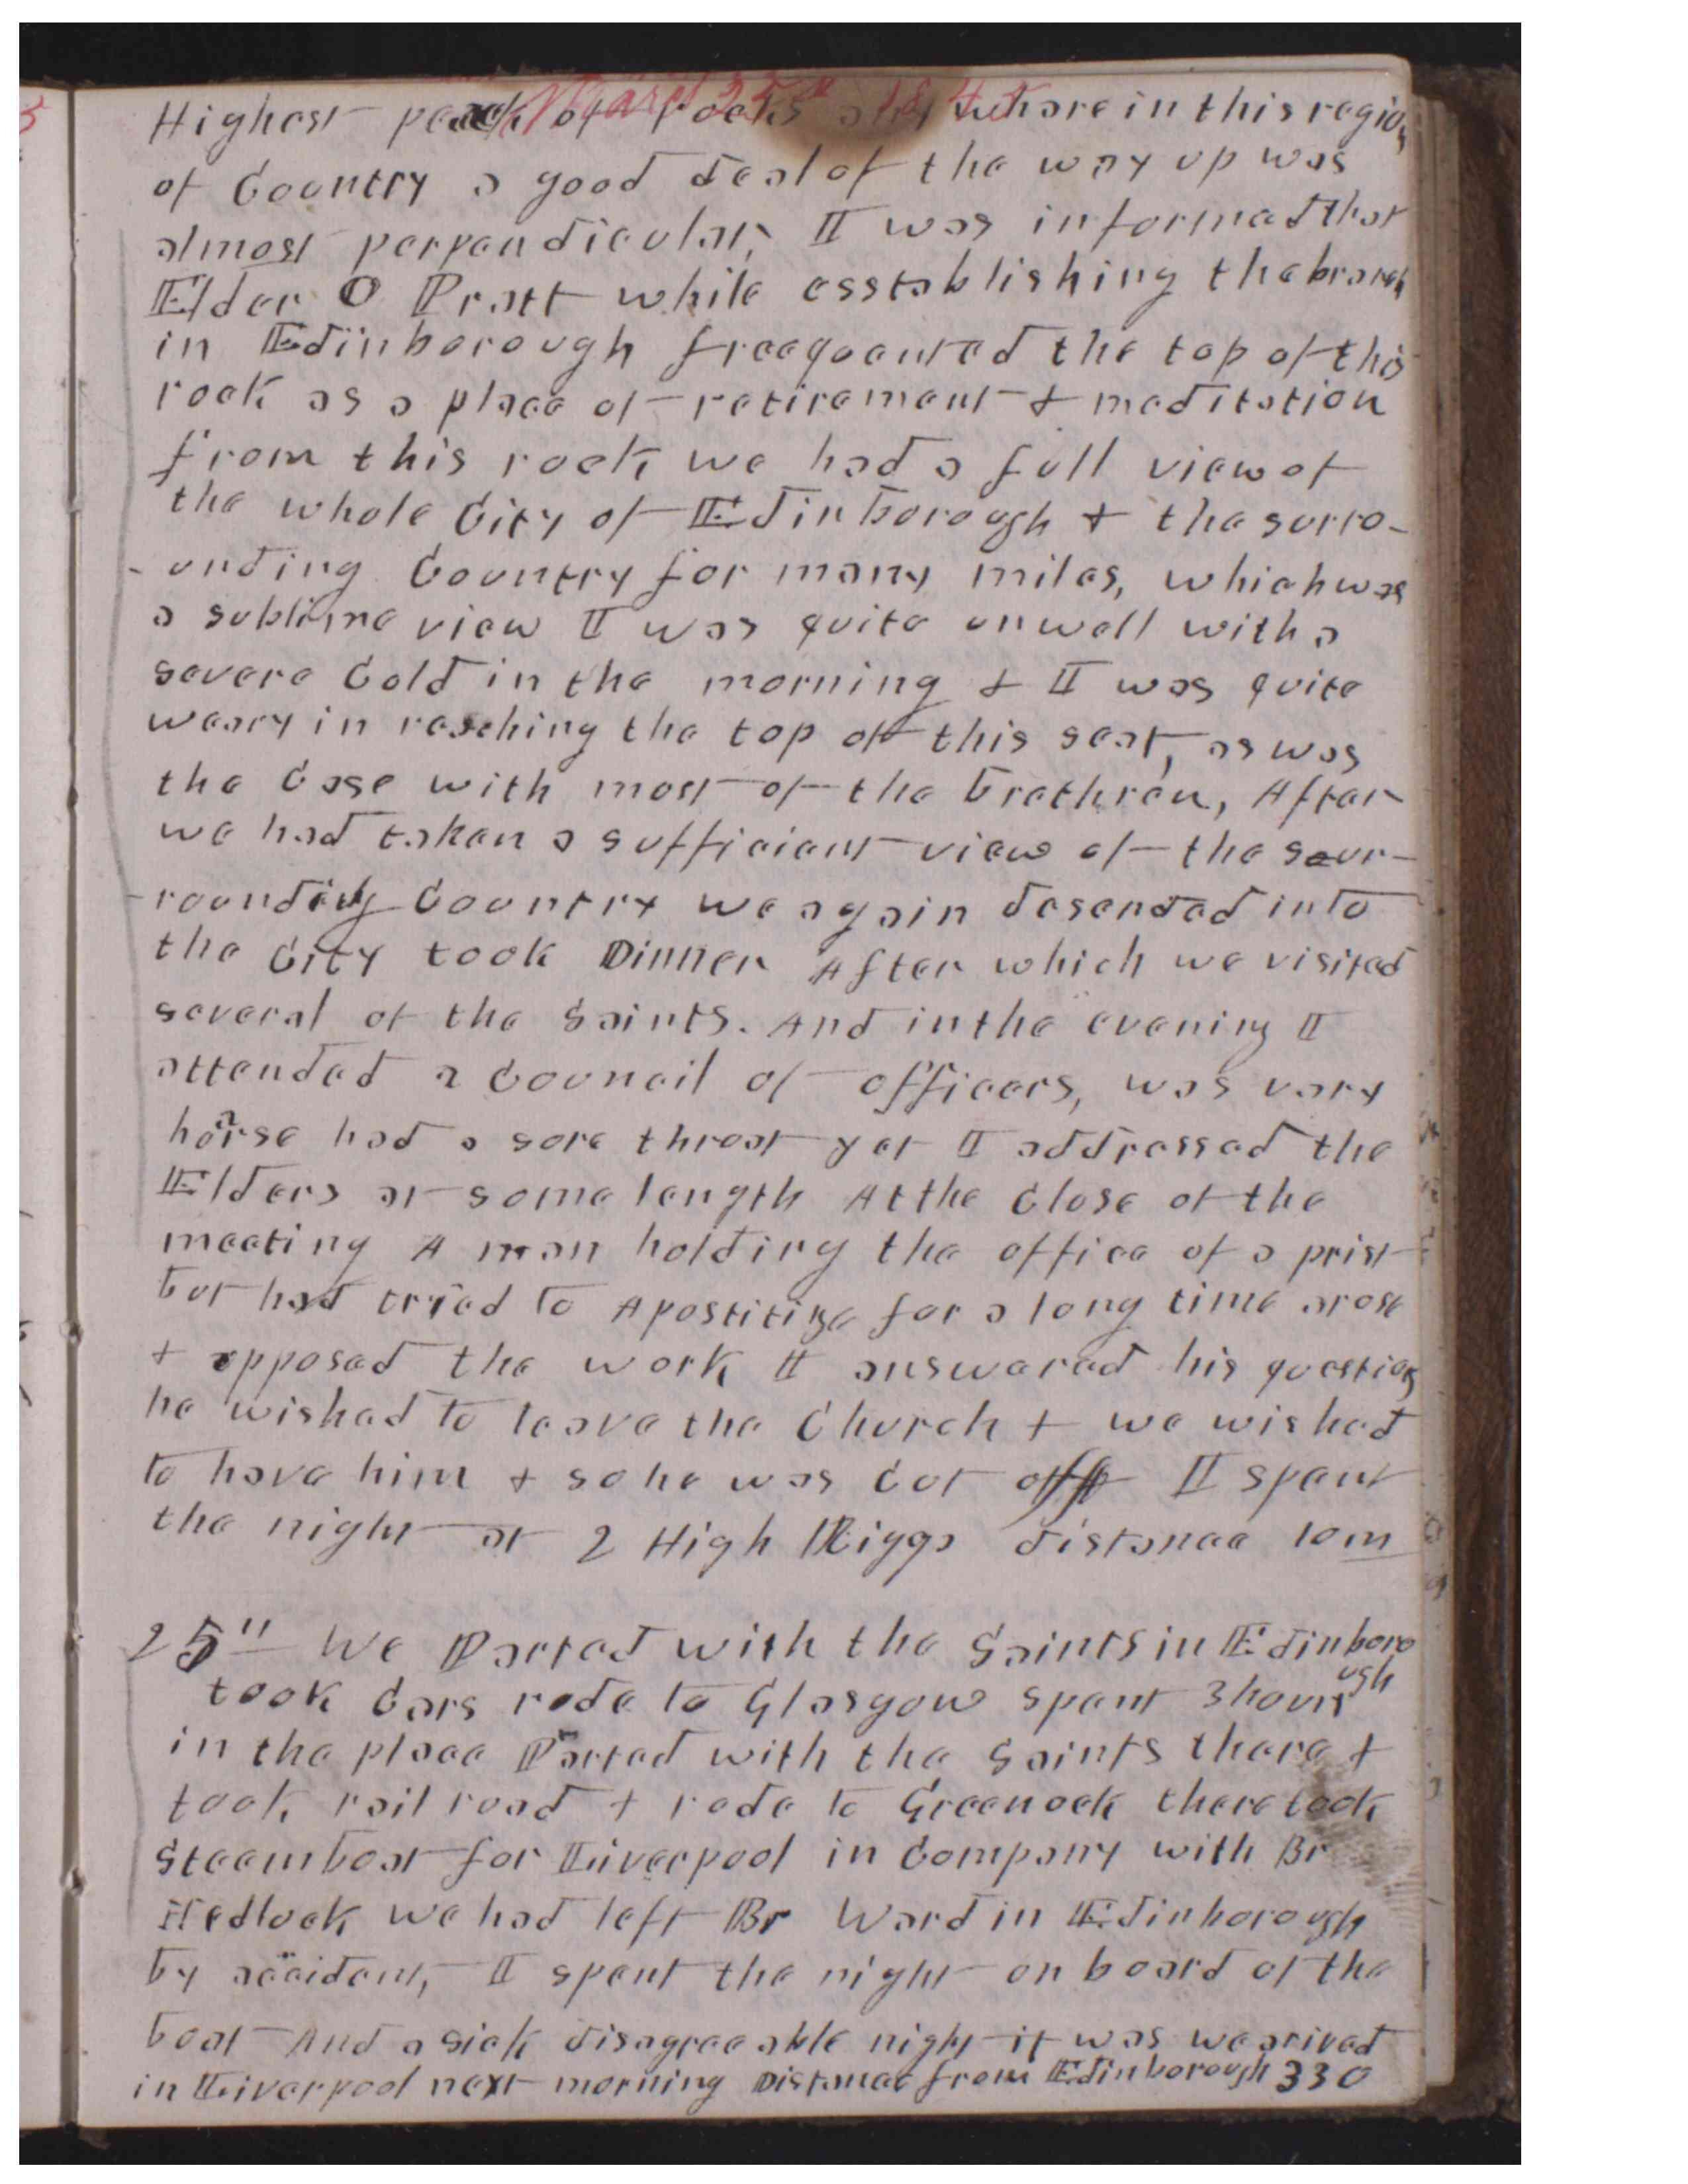 March 25th 1845
Highest peack of rocks any whare in this region
of Country a good deal of the way up was
almost perpendicular, I was informed that
Elder O Pratt while esstablishing the branch
in Edinborough freequented the top of this
rock as a place of retirement & meditation
from this rock we had a full view of
the whole City of Edinborough & the surro-
-unding Country for many miles, which was
a sublime view I was quite unwell with a
severe Cold in the morning & I was quite
weary in reaching the top of this seat, as was
the Case with most of the brethren, After
we had taken a sufficient view of the sour-
-rounding Country we again desended into
the City took Dinner After which we visited
several of the Saints. And in the evening I
attended a Council of officers, was very
hoarse had a sore throat yet I addressed the
Elders at some length At the Close of the
meeting A man holding the office of a prist
but had tried to Apostitize for a long time arose
& opposed the work I answered his question
he wished to leave the Church & we wished
to have him & so he was Cut off I spent
the night at 2 High Riggs distance 10 m
25" We Parted with the Saints in Edinboro
ugh
took Cars rode to Glasgow spent 3 hours
in the place Parted with the Saints there &
took rail road & rode to Greenock there took
Steemboat for Liverpool in Company with Br
Hedlock we had left Br Ward in Edinborough
by accident, I spent the night on board of the
boat And a sick disagreeable night it was we arived
in Liverpool next morning Distance from Edinborough 330